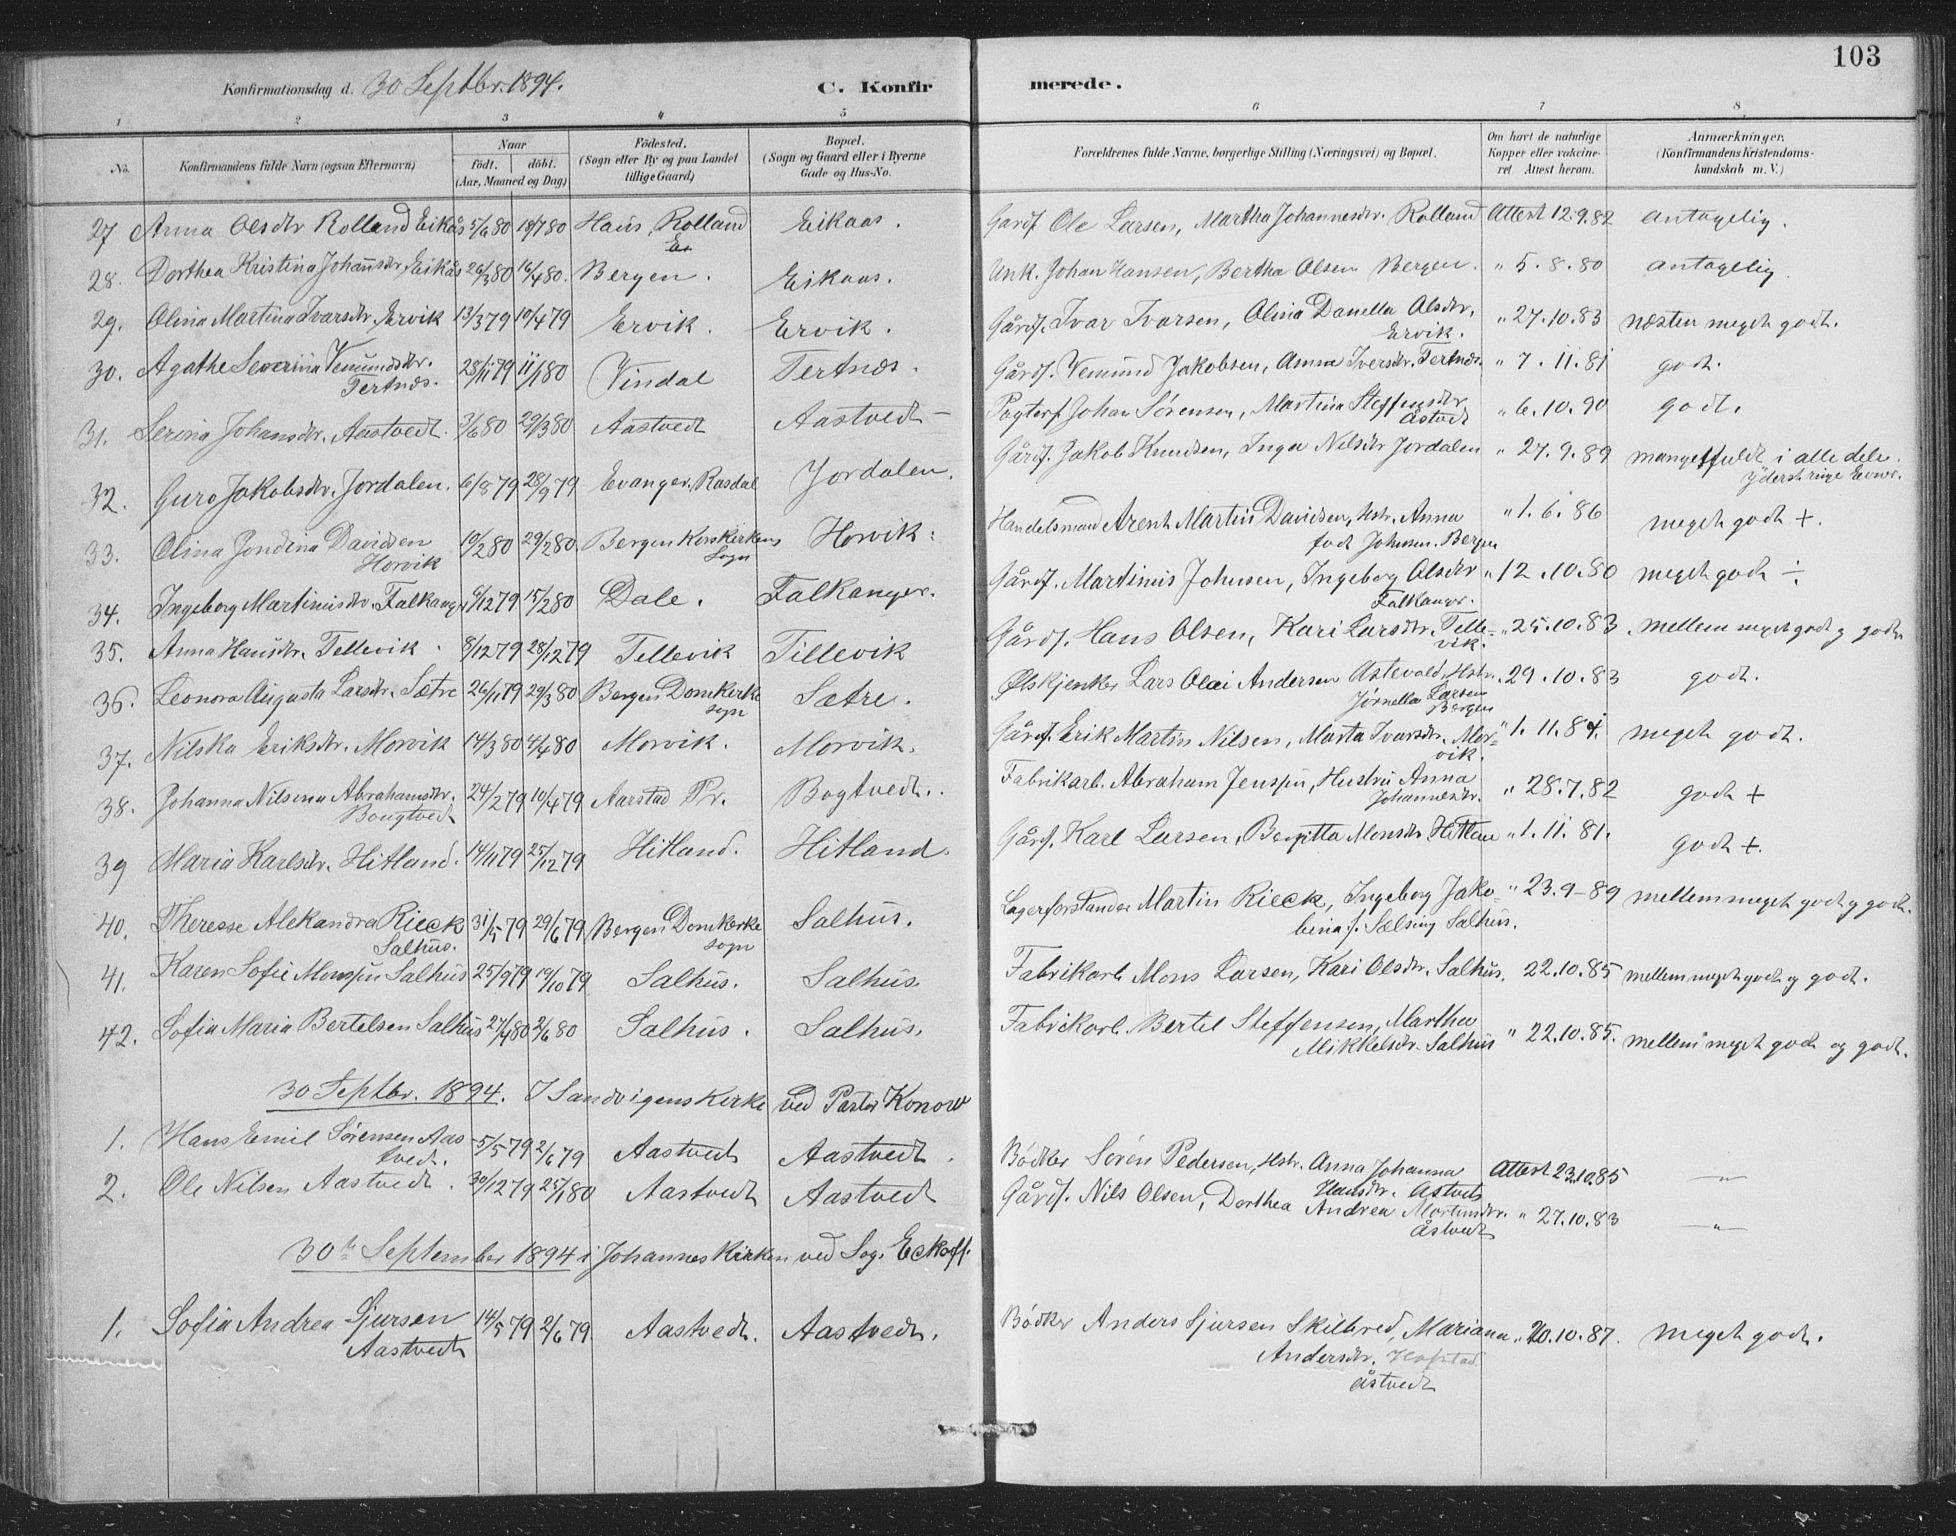 103
Konfirmationsdag d. 30 Septbr. 1894.
C. Konfirmerede.
1 2 3 4 5 6 7 8
No. Konfirmandens fulde Navn (ogsaa Efternavn) Naar født. døbt. (Aar, Maaned og Dag) Födested. (Sogn eller By og paa Landet tillige Gaard) Bopæl. (Sogn og Gaard eller i Byerne Gade og Hus-No. Forældrenes fulde Navne, borgerlige Stilling (Næringsvei) og Bopæl. Om havt de naturlige Kopper eller vakcineret Attest herom. Anmærkninger. (Konfirmandens Kristendomskundskab m.V.)
27 Anna Olsdtr Rolland Eikås 5/6 80 18/7 80 Haus, Rolland Eikaas. Gardf. Ole Larsen, Martha Johannesdtr. Rolland Attest 12.9.82 antagelig.
28. Dorthea Kristina Johansdr. Eikås 26/3 80 16/4 80. Bergen. Eikaas. Unk. Johan Hansen, Bertha Olsen Bergen. " 5.8.80 antagelig
29. Olina Martina Ivarsdtr. Ervik 13/3 79 10/4 79 Ervik. Ervik. Gårdf. Ivar Ivarsen, Olina Danella Olsdtr. Ervik. " 27.10.83 næsten meget godt.
30. Agathe Severina Vemundsdtr. Tertnæs. 28/11 79 11/1 80 Vindal Tertnæs. Gårdf. Vemund Jakobsen, Anna Iversdtr. Tertnæs. " 7.11.81 godt.
31. Serina Johansdtr. Aastvedt. 3/6 80 29/3 80 Aastvedt Aastvedt Pagterf Johan Sørensen, Martina Steffensdtr Åstvedt " 6.10.90 godt.
32. Guro Jakobsdtr. Jordalen. 6/8 79 28/9 79 Evanger, Rasdal Jordalen. Gårdf. Jakob Knudsen, Inga Nilsdtr Jordalen " 27.9.89 mangelfuldt i alle dele. yderst ringe Evner.
33. Olina Jondina Davidsen Horvik 10/2 80 29/2 80. Bergen Korskirkens Sogn Horvik. Handelsmand Arent Martin Davidsen, Hstr. Anna født Johnsen. Bergen " 1.6.86 meget godt +.
34. Ingeborg Martinusdtr. Falkanger 9/12 79 15/2 80 Dale. Falkanger. Gårdf. Martinus Johnsen, Ingeborg Olsdtr Falkanger. " 12.10.80 meget godt ÷
35. Anna Hansdtr. Tellevik. 8/12 79 28/12 79 Tellevik Tillevik Gårdf. Hans Olsen, Kari Larsdtr. Tellevik. " 25.10.83. mellem meget godt og godt.
36. Leonora Augusta Larsdtr. Sætre 26/11 79 29/3 80 Bergen Domkirke sogn Sætre. Ølskjenker Lars Olai Andersen Astevold, Hstr. Jørnella Larsen Bergen " 29.10.83 godt.
37. Nilska Eriksdtr. Morvik 14/3 80 4/4 80 Morvik. Morvik. Gårdf. Erik Martin Nilsen, Marta Ivarsdtr. Morvik. " 1.11.84. meget godt.
38. Johanna Nilsena Abrahamsdtr. Bougtvedt 24/2 79 10/4 79 Aarstad Pr. Bogtvedt. Fabrikarb. Abraham Jensen, Hustru Anna Johannesdtr. " 28.7.82 godt +
39 Maria Karlsdtr. Hitland. 14/11 79 25/12 79 Hitland. Hitland. Gårdf. Karl Larsen, Bergitta Monsdtr. Hitland " 1.11.81. godt +.
40. Therese Aleksandra Rieck Salhus. 31/5 79 29/6 79 Bergen Domkirke sogn Salhus. Lagerforstander Martin Rieck, Ingeborg Jakobina f. Sælsing Salhus. " 23.9-89 mellem meget godt og godt.
41. Karen Sofie Monsen Salhus 25/9 79 19/10 79 Salhus. Salhus. Fabrikarb Mons Larsen, Kari Olsdtr. Salhus. 22.10.85 mellem meget godt og godt.
42. Sofia Maria Bertelsen Salhus 27/4 80 2/6 80 Salhus. Salhus. Fabrikarb. Bertel Steffensen, Martha Mikkelsdtr. Salhus " 22.10.85. mellem meget godt og godt.
30 Septbr. 1894. I Sandvigenskirke ved Pastor Konow
1. Hans Emil Sørensen Aastvedt. 5/5 79 2/6 79 Aastvedt Aastvedt. Bødker Søren Pedersen, Hstr. Anna Johanna Hansdtr. Åstvedt Attest 23.10.85 -"-
2. Ole Nilsen Aastvedt. 30/12 79 25/1 80 Aastvedt Aastvedt Gårdf. Nils Olsen, Dorthea Andrea Mortensdtr. Åstvedt " 27.10.83 -"-
30te September 1894 i Johanneskirken ved Sog. Eckoff.
1. Sofia Andrea Sjursen Aastvedt 14/5 79 2/6 79. Aastvedt. Aastvedt. Bødker Anders Sjursen Skilbred, Mariana Andersdtr. Hopstad Åstvedt " 20.10.87. meget godt.